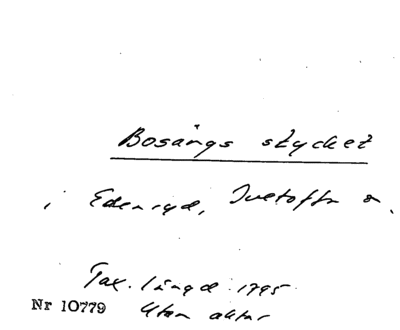 Bosångs stycket
i Edenryd, Ivetofta s.
Tax. längd 1795
Nr 10779 Utan aktnr